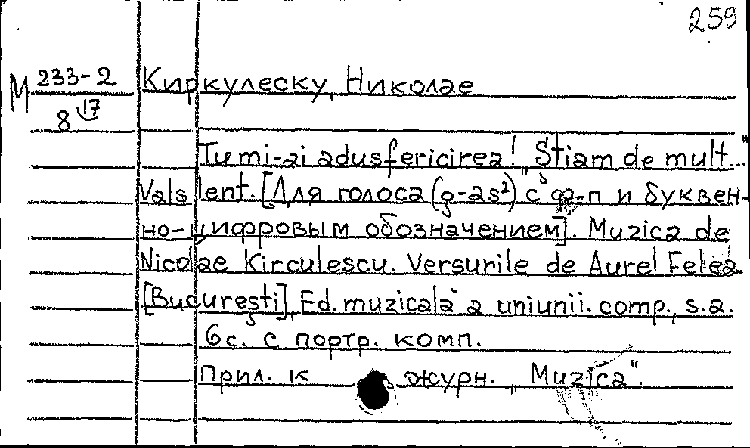 259
М 233-2 Киркулеску, Николае
8 17
Tu mi-ai adus fericirea! „Stiam de mult..."
Vals lent. [Для голоса (g-as²) с ф-п и буквен-
но-цифровым обозначением]. Muzica de
Nicolae Kirculescu. Versurile de Aurel Felea
[Bucureşti], Ed. muzicală a uniunii. comp., s.a.
6с. с портр. комп.
Прил. к журн. „Muzica".